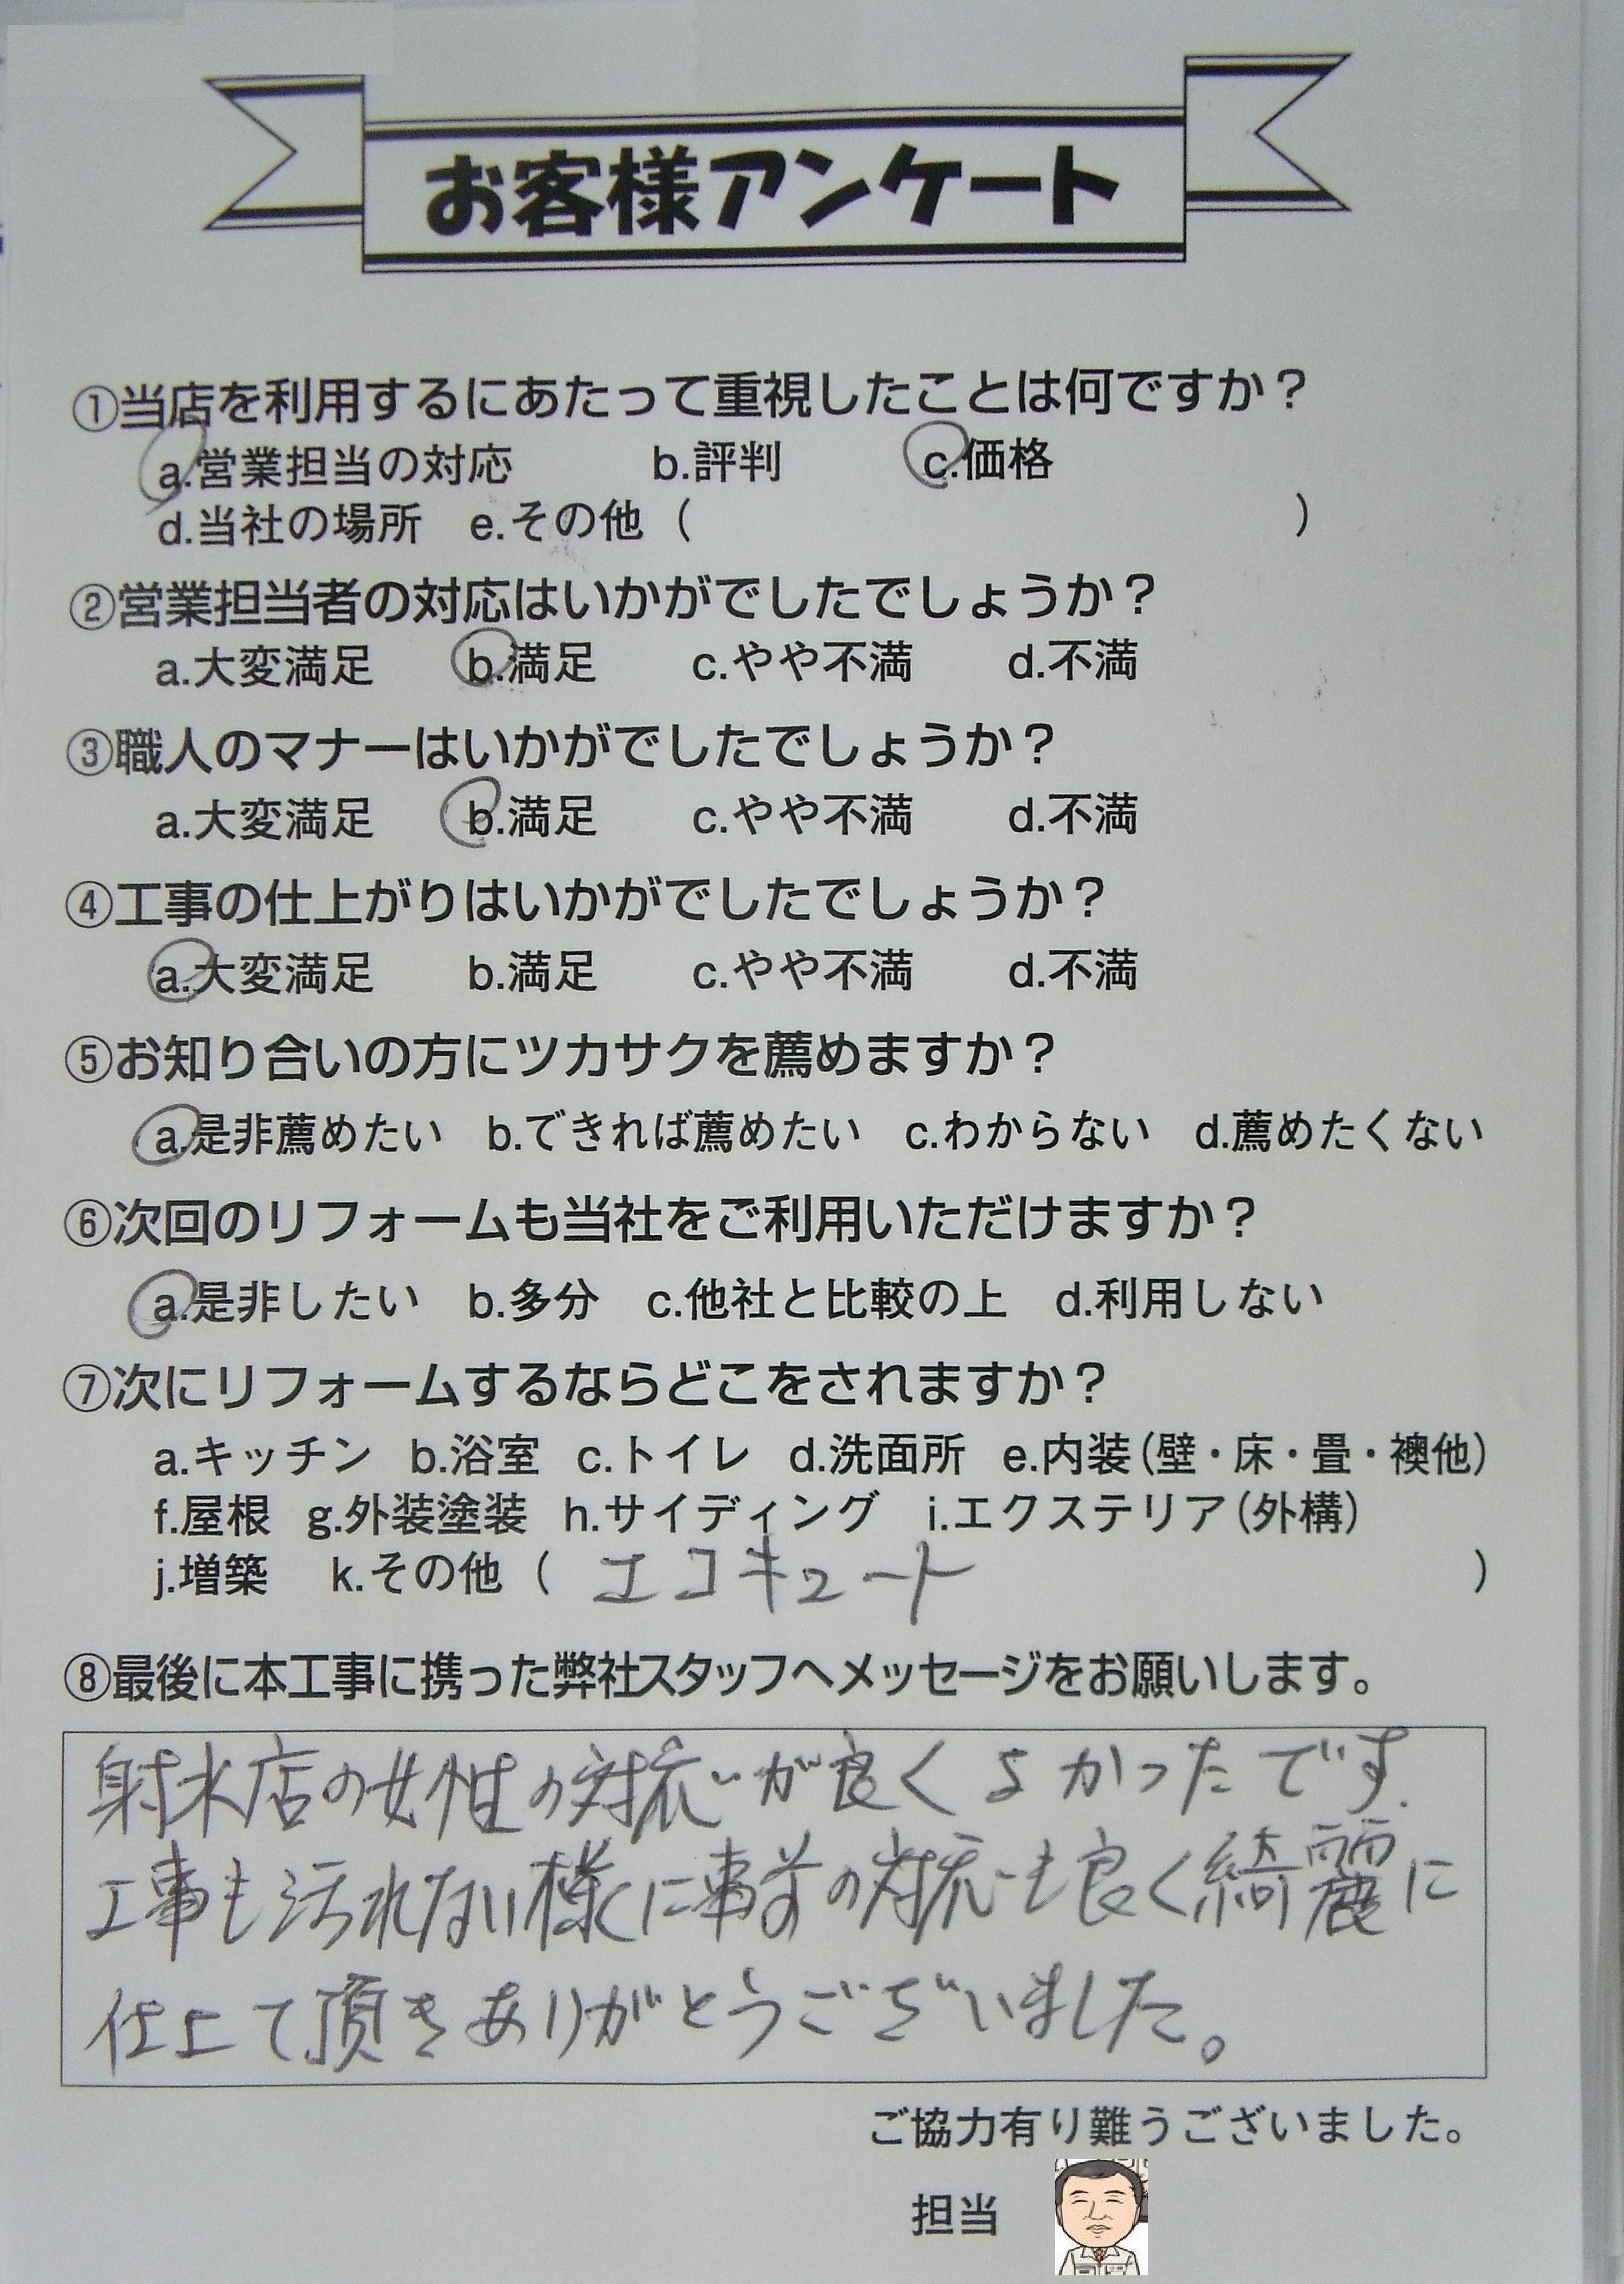 お客様アンケート
①当店を利用するにあたって重視したことは何ですか？
a.営業担当の対応 b.評判 c.価格
d.当社の場所 e.その他（ ）
②営業担当者の対応はいかがでしたでしょうか？
a.大変満足 b.満足 c.やや不満 d.不満
③職人のマナーはいかがでしたでしょうか？
a.大変満足 b.満足 c.やや不満 d.不満
④工事の仕上がりはいかがでしたでしょうか？
a.大変満足 b.満足 c.やや不満 d.不満
⑤お知り合いの方にツカサクを薦めますか？
a.是非薦めたい b.できれば薦めたい c.わからない d.薦めたくない
⑥次回のリフォームも当社をご利用いただけますか？
a.是非したい b.多分 c.他社と比較の上 d.利用しない
⑦次にリフォームするならどこをされますか？
a.キッチン b.浴室 c.トイレ d.洗面所 e.内装（壁・床・畳・襖他）
f.屋根 g.外装塗装 h.サイディング i.エクステリア（外構）
j.増築 k.その他（ エコキュート ）
⑧最後に本工事に携った弊社スタッフへメッセージをお願いします。
射水店の女性の対応いが良くよかったです.
工事も汚れない様に事前の対応いも良く綺麗に
仕上て頂きありがとうございました。
ご協力有り難うございました。
担当